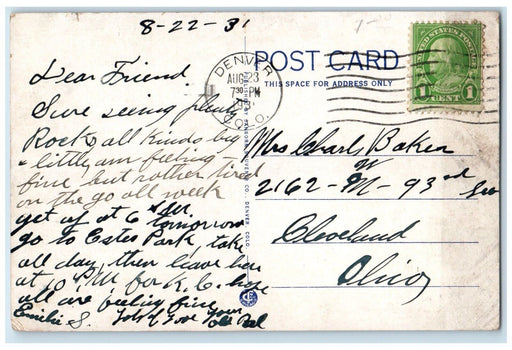 8-22-31
POST CARD
THIS SPACE FOR ADDRESS ONLY
DENVER
AUG 23
7 30 PM
1931
COLO.
UNITED STATES POSTAGE
1 CENT 1
Dear Friend
Sure seeing plenty
Rocks all kinds big
& little, am feeling
fine but rather tired
on the go all week
get up at 6 AM tomorrow
go to Estes Park, take
all day, then leave here
at 10 PM for K.C. hope
all are feeling fine
Emilie S. Lots of Love Your
Old Pal
Mrs Chas Baker
2162 - W - 93rd
Cleveland
Ohio